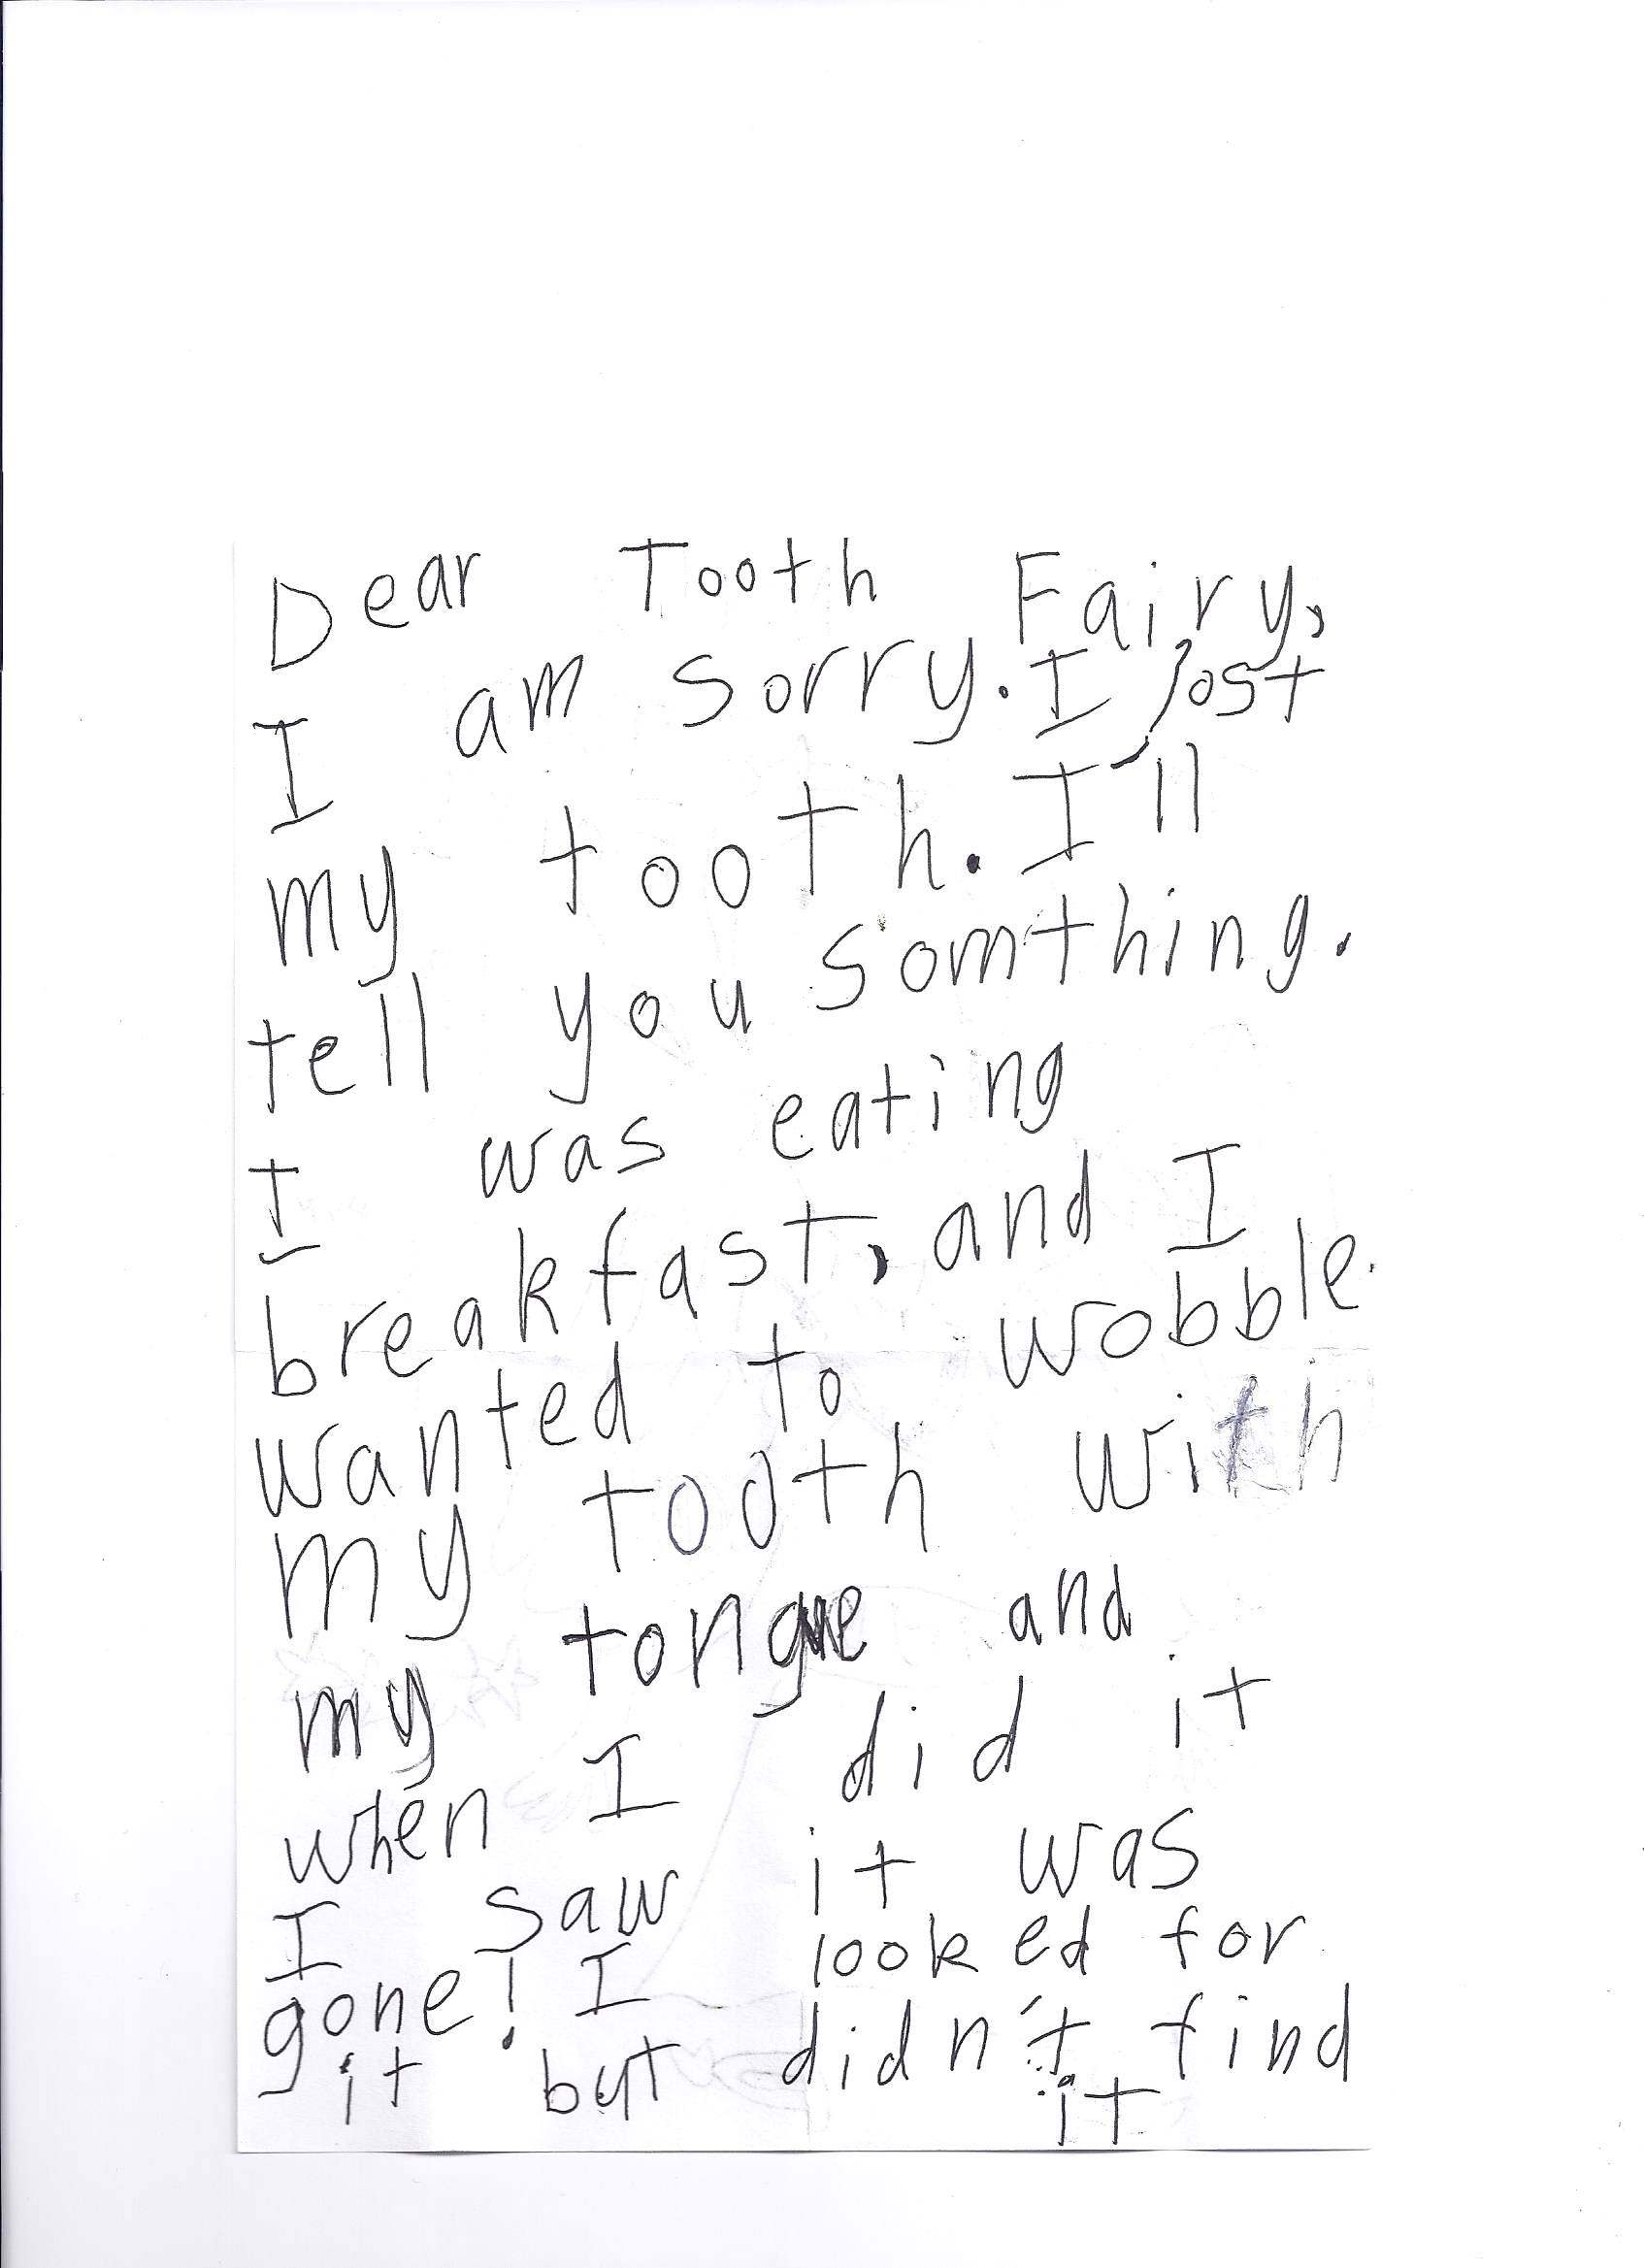 Dear Tooth Fairy,
I am sorry. I lost
my tooth. I'll
tell you somthing.
I was eating
breakfast, and I
wanted to wobble
my tooth with
my tongue and
when I did it
I saw it was
gone! I looked for
it but didn't find
it